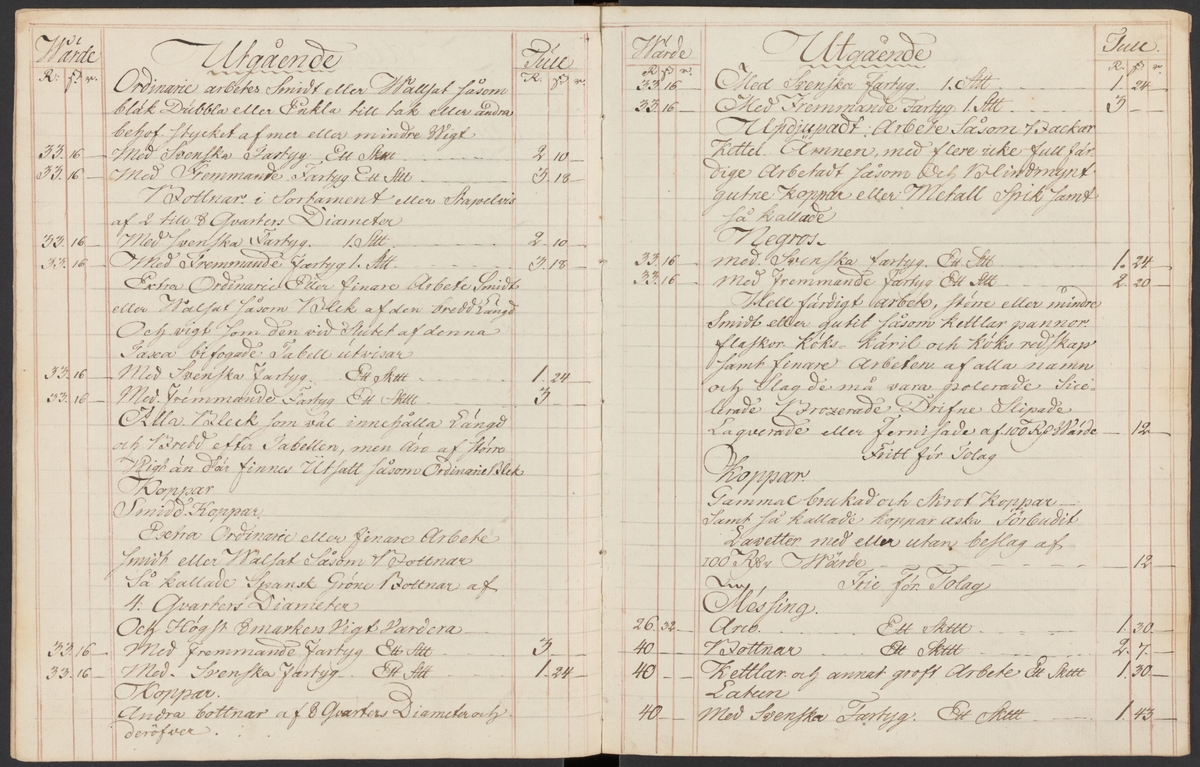 Wärde Utgående Tull
R: ß r. R. ß r.
Ordinarie arbete Smidt eller Wallsat såsom
bläk Dubbla eller Enkla till tak eller andra
behof stycket af mer eller mindre Wigt
33. 16 — Med Svenska Fartyg Ett Sktt 2 10 —
33. 16 — Med Fremmande Fartyg Ett Stt 3 18 —
Bottnar i Sortament eller Stapelvis
af 2 till 8 Qvarters Diameter
33. 16 — Med Svenska Fartyg. 1. Stt 2 10 —
33. 16 — Med Fremmande Fartyg 1. Stt 3. 18 —
Extra Ordinarie Eller finare Arbete Smidt
eller Walsat såsom Blek af den bredd Längd
Och vigt som den vid Slutet af denna
Taxa bifogade Tabell utvisar
33. 16 — Med Svenska Fartyg. Ett Sktt 1. 24
33. 16 — Med Fremmande Fartyg Ett Sktt 3
Alla Bleck som väl innehålla Längd
och Bredd efter Tabellen, men äro af större
Wigt än där finnes Utsatt såsom Ordinarie Blek
Koppar
Smidd Koppar
Extra Ordinarie eller finare Arbete
smidt eller Walsat Såsom Bottnar
Så kallade Spansk Gröne Bottnar af
4. Qvarters Diameter
Och Högst 8 marker Vigt Vardera
33. 16 Med fremmande fartyg Ett Stt 3 —
33. 16 — Med Svenska fartyg Ett Stt 1. 24 —
Koppar.
Andra bottnar af 8 Qvarters Diameter och
deröfver.
Wärde Utgående Tull.
R ß r. R. ß r.
33 16 — Med Svenska Fartyg 1. Stt 1. 24 —
33. 16 — Med Fremmande Fartyg 1. Stt 3 —
Uppdjupadt Arbete Såsom Backar
Kettel Ämnen, med flere icke full fär
dige Arbetadt såsom Och Blindmynt
gutne Koppar eller Metall Spik samt
så kallade
Negros.
33. 16 med Svenska fartyg. Ett Stt 1. 24 —
33. 16 — med fremmande fartyg Ett Stt 2. 20 —
Hell färdigt arbete, större eller mindre
Smidt eller gutit såsom kettlar pannor
flaskor köks- käril och köks redskap
samt finare Arbeten af alla namn
och slag de må vara polerade
Brozerade Drifne Slipade
Laqverade eller Fernissade af 100 Rd Wärde — 12
Fritt för Tolag
Koppar
Gammal brukad och Skrot Koppar
samt så kallade koppar aska Förbudit
Lavetter med eller utan beslag af
100 Rdr Wärde — 12
Frie för Tolag
Messing.
26 32 — Ett Sktt 1. 30. —
40 — Bottnar Ett Sktt 2. 7. —
40 — Kettlar och annat groft Arbete Ett Sktt 1. 30
Latun
40 — Med Svenska Fartyg. Ett Sktt 1. 43 —